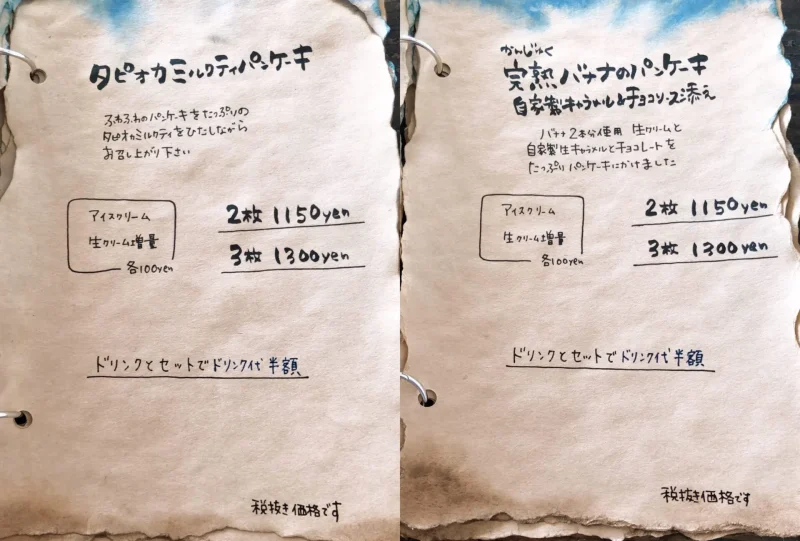 タピオカミルクティパンケーキ
ふわふわのパンケーキをたっぷりの
タピオカミルクティをひたしながら
お召し上がり下さい
アイスクリーム
生クリーム増量
各100yen
2枚 1150yen
3枚 1300yen
ドリンクとセットでドリンク代半額
税抜き価格です
かんじゅく
完熟バナナのパンケーキ
自家製キャラメル&チョコソース添え
バナナ2本分使用 生クリームと
自家製生キャラメルとチョコレートを
たっぷりパンケーキにかけました
アイスクリーム
生クリーム増量
各100yen
2枚 1150yen
3枚 1300yen
ドリンクとセットでドリンク代半額
税抜き価格です